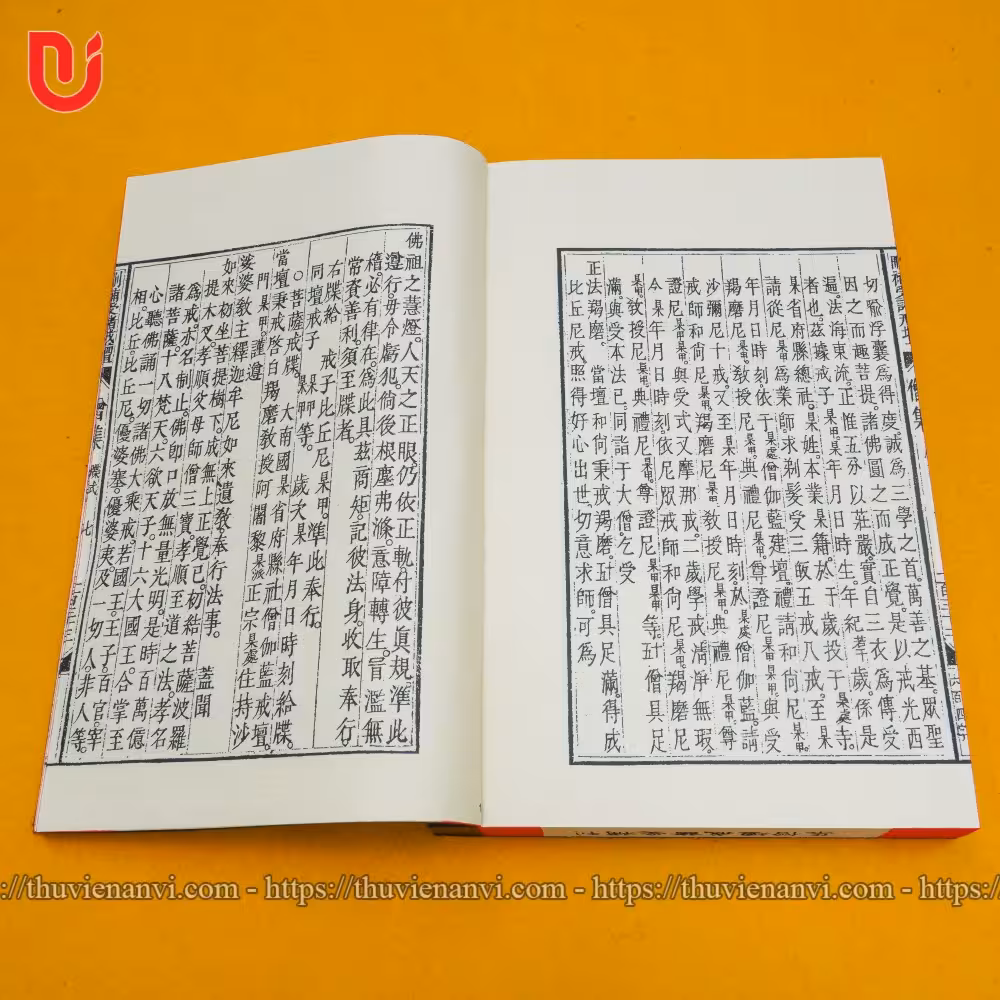 切喻浮囊爲得度。誠爲三學之首。萬善之基。眾聖
因之而趣菩提。諸佛圓之而成正覺。是以戒光西
遍。法海東流。正惟五分以莊嚴。實自三衣爲傳受
者也。茲據戒子杲甲。於年月日時生。年紀羣歲。係是
杲省府縣總社。杲姓本業杲籍。於干歲投于杲處寺。
請從尼杲甲業師求剃髮受三皈五戒八戒。至杲
年月日時刻。依于杲處僧伽藍建壇。禮請和尚尼杲甲。
羯磨尼杲甲。教授尼杲甲。典禮尼杲甲。尊證尼杲甲杲甲。與受
沙彌尼十戒。又至杲年月日時刻。於杲處僧伽藍。請
戒師和尚尼杲甲。羯磨尼杲甲。教授尼杲甲。典禮尼杲甲。尊
證尼杲甲杲甲。與受式叉摩那戒。二歲學戒。清淨無瑕。
今杲年月日時刻依尼眾戒師和尚尼杲甲。羯磨尼
杲甲。教授尼杲甲。尊證尼杲甲杲甲等。五十僧具足
滿。與受本法已。同詣于大僧。乞受
正法羯磨。當壇和尚秉戒羯磨。五十僧具足滿。得成
比丘尼戒。照得好心出世。切意求師。可爲
佛祖之慧燈。人天之正眼。仍依正軌付彼眞規。準此
遵行。毋令虧犯。倘後根塵弗滌。意障轉生。冒濫無
稽。必有律在。爲此具茲商矩。記彼法身。收取奉行
常資善利。須至牒者。
右牒給 戒子比丘尼杲甲。準此奉行。
同壇戒子 杲甲等。 歲次杲年月日時刻給牒。
○菩薩戒牒。 大南國杲省府縣社僧伽藍戒壇。
當壇秉戒啓白羯磨教授阿闍黎杲派正宗杲處住持沙
門杲甲。謹遵
娑婆教主釋迦牟尼如來遺教。奉行法事。 蓋聞
如來初坐菩提樹下。成無上正覺已。初結菩薩波羅
提木叉。孝順父母師僧三寶。孝順至道之法。孝名
爲戒。亦名制止。佛卽口放無量光明。是時百萬億
諸菩薩。十八梵天。六欲天子。十六大國王。合掌至
心聽佛誦一切諸佛大乘戒。若國王。王子。百官。宰
相。比丘。比丘尼。優婆塞。優婆夷。及一切人。非人等
牒式 七
https://thuvienanvi.com - https://thuvienanvi.com - https://thuvienanvi.com